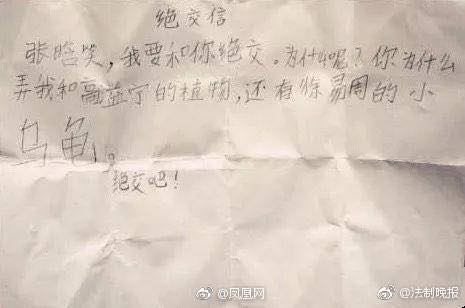 绝交信
张晗笑，我要和你绝交。为什么呢？你为什么
弄我和高益宁的植物，还有徐易周的小
乌龟。
绝交吧！
@凤凰网
@法制晚报